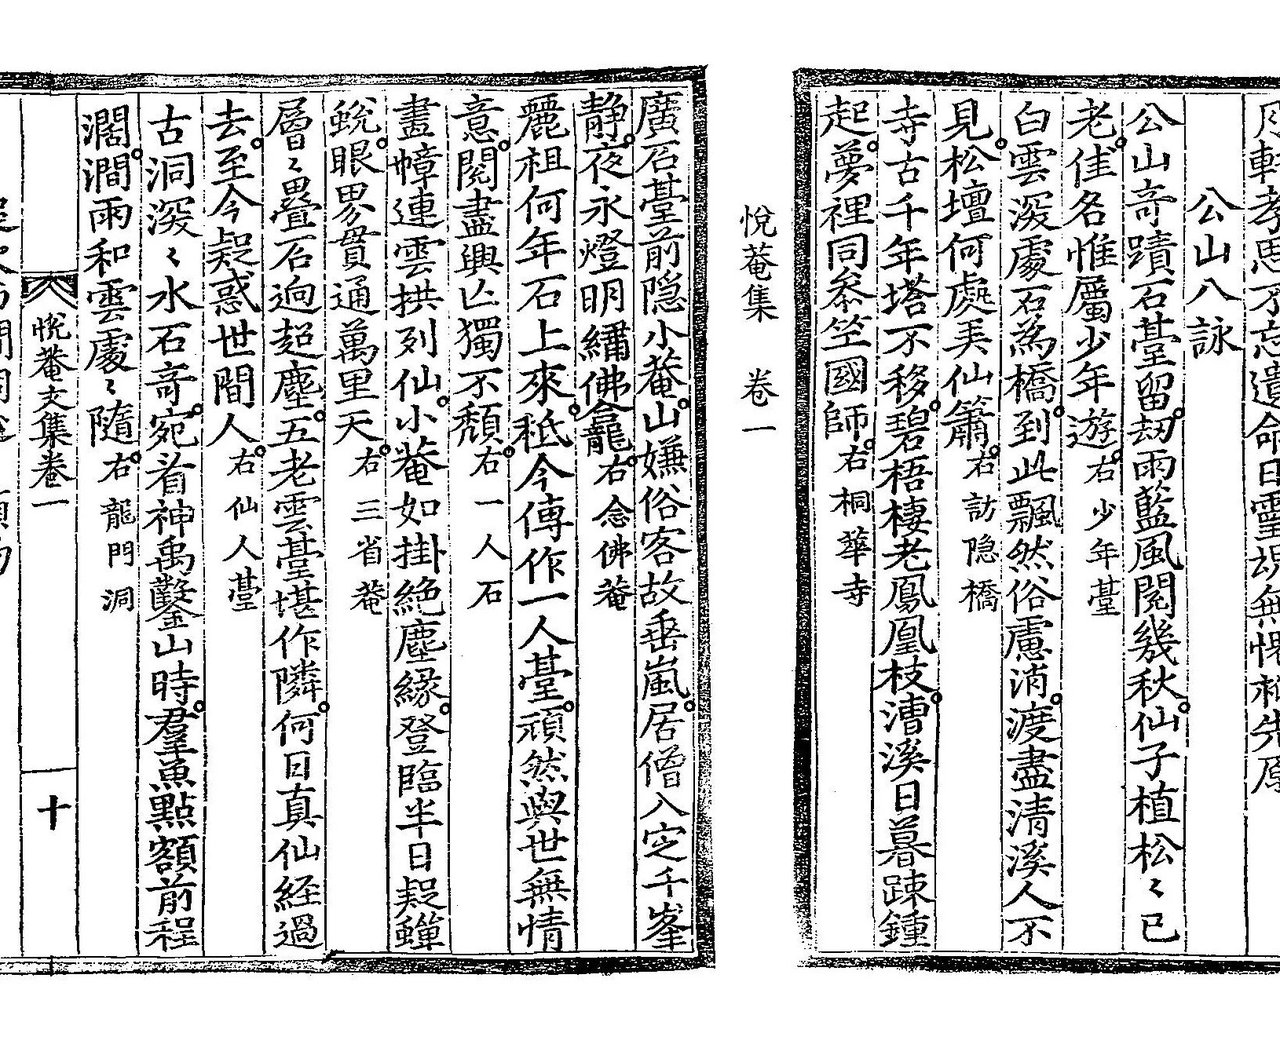 月軒孝思不忘遺命日靈垠無愧柏先原
公山八詠
公山奇蹟石臺留劫雨藍風閱幾秋仙子植松〻已
老佳名惟屬少年遊右少年臺
白雲深處石爲橋到此飄然俗慮消渡盡清溪人不
見松壇何處美仙簫右訪隐橋
寺古千年塔不移碧梧棲老鳳凰枝漕溪日暮踈鍾
起夢裡同叅竺國師右桐華寺
悅菴集 卷一
廣石臺前隐小菴山嫌俗客故垂嵐居僧入定千峯
静夜永燈明繡佛龕右念佛菴
麗祖何年石上來秪今傳作一人臺頑然與世無情
意閱盡興亡獨不頹右一人石
畫幛連雲拱列仙小菴如掛絶塵緣登臨半日疑蟬
蛻眼界貫通萬里天右三省菴
層〻疊石逈超塵五老雲臺堪作隣何日真仙經過
去至今疑惑世間人右仙人臺
古洞深〻水石奇宛看神禹鑿山時羣魚點額前程
濶澗雨和雲處〻隨右龍門洞
悅菴文集卷一
十